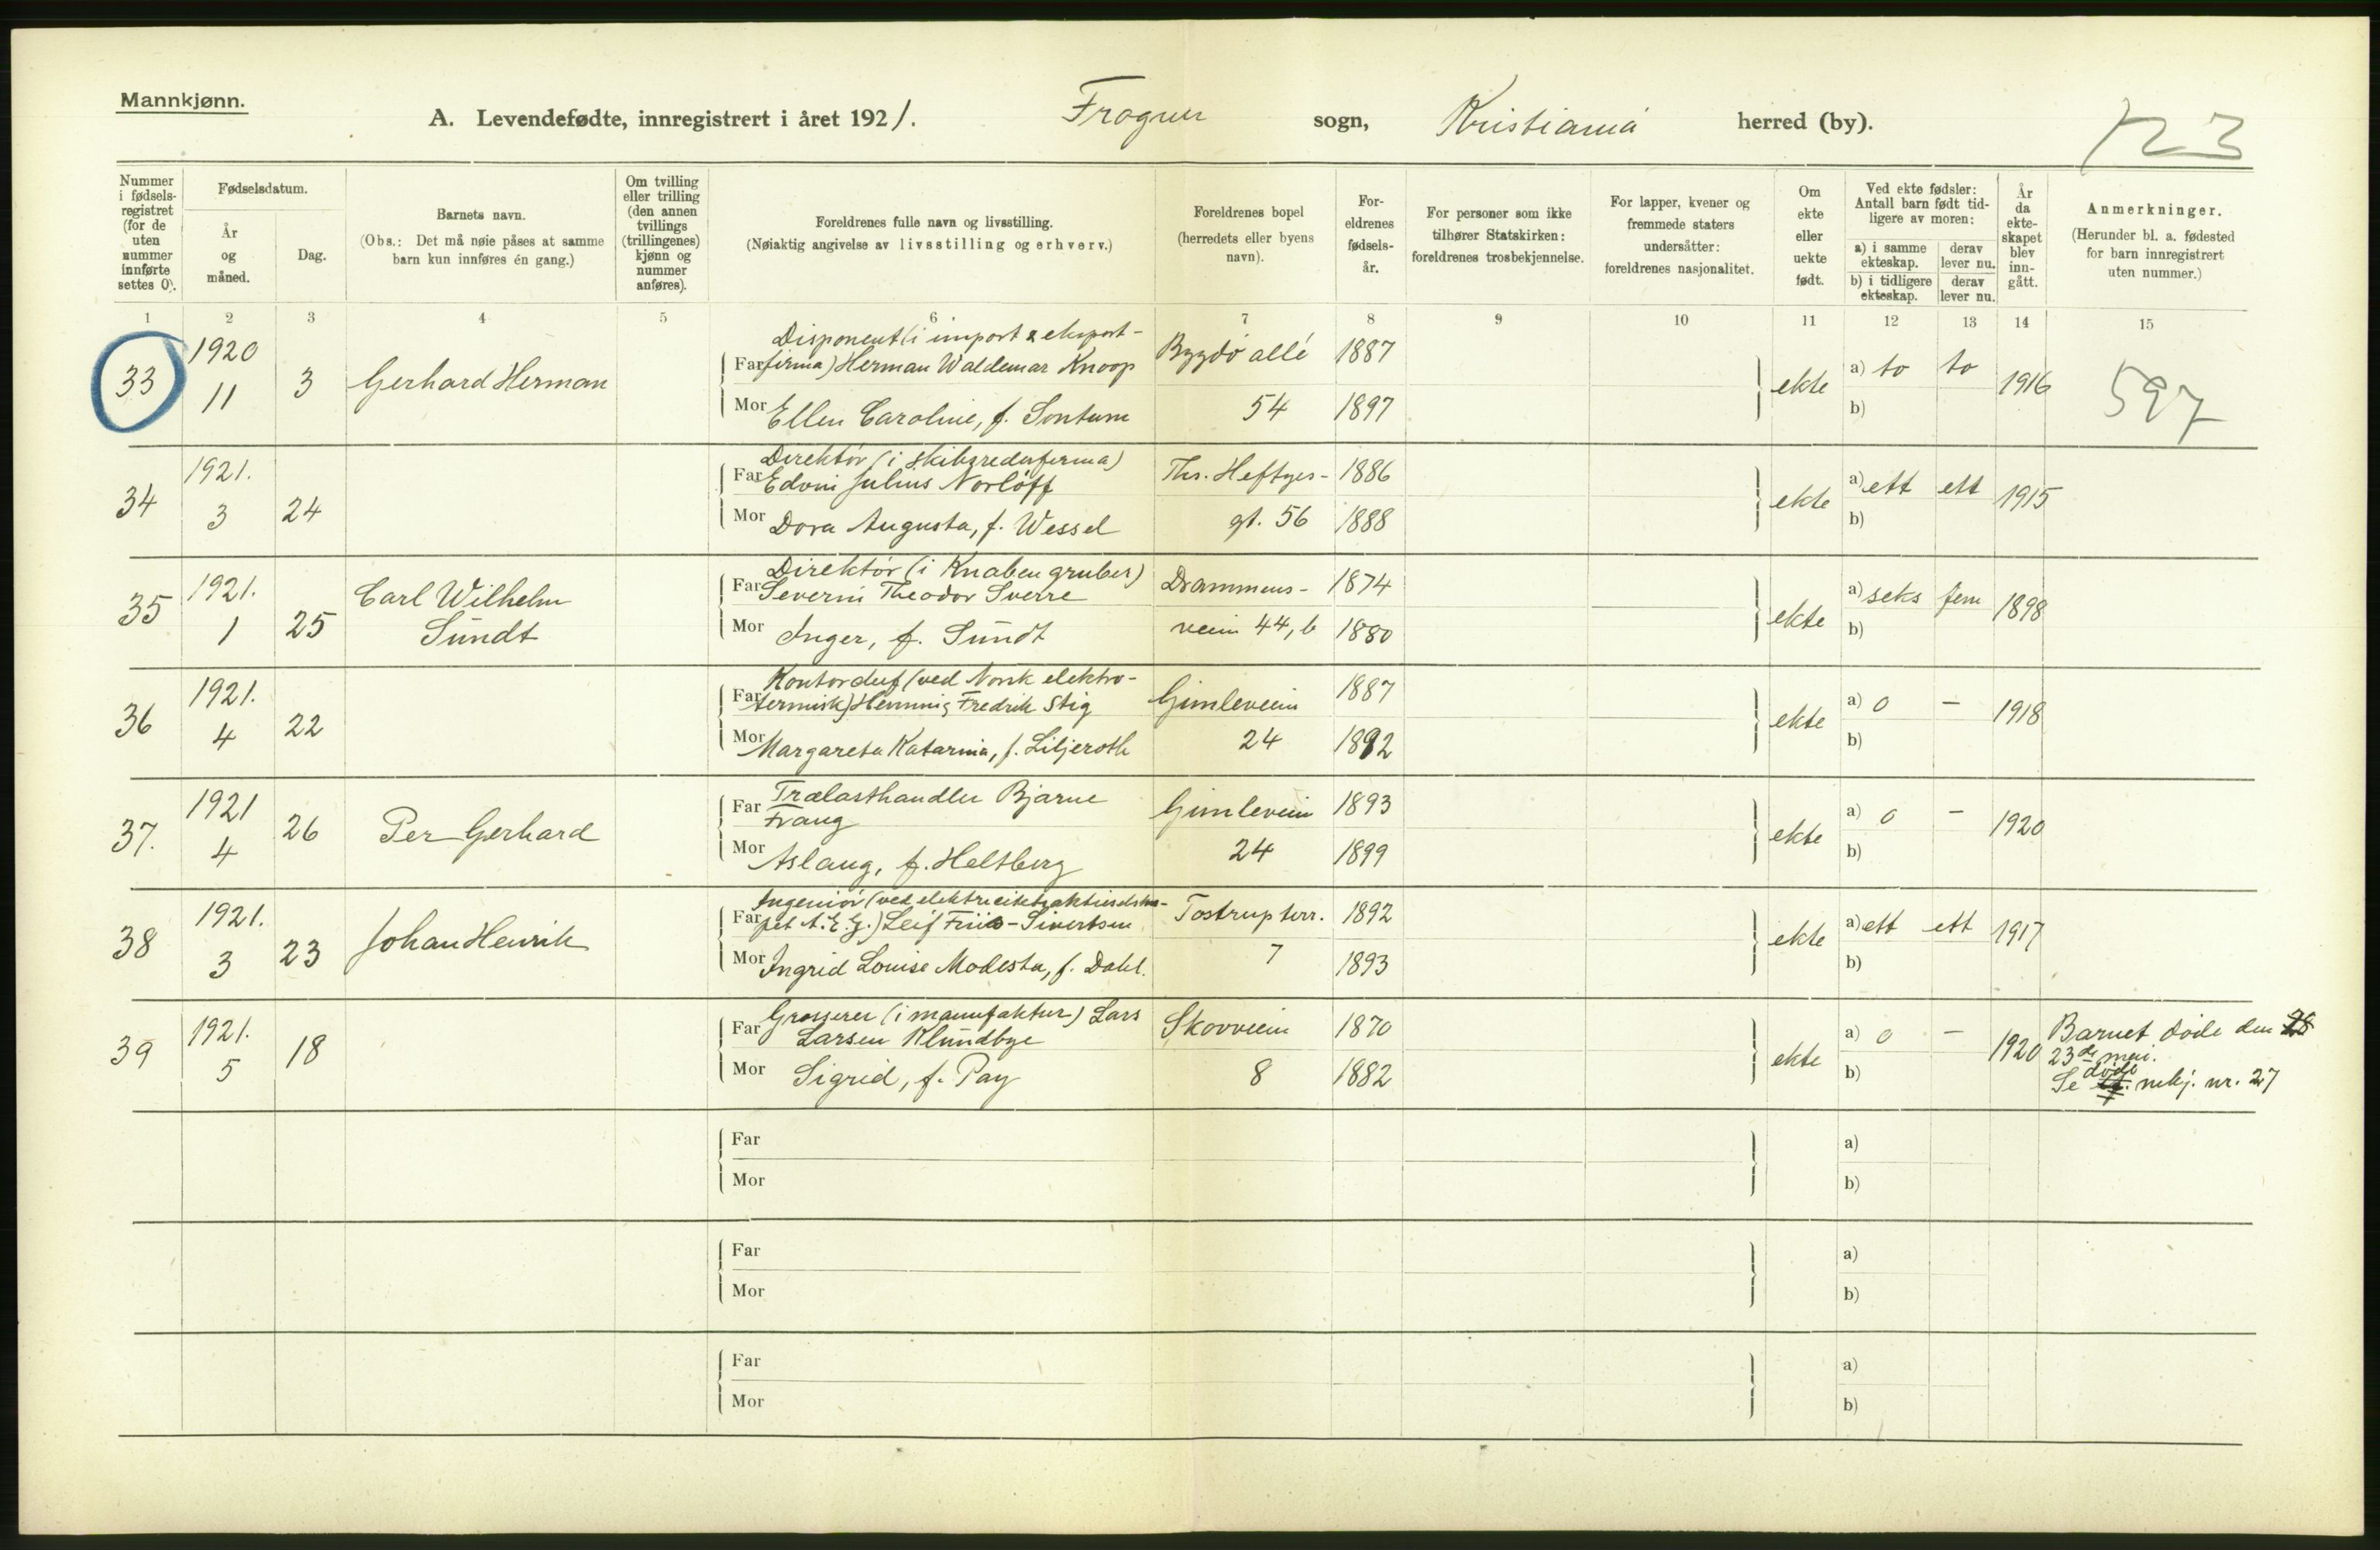 Mannkjønn.
A. Levendefødte, innregistrert i året 1921. Frogner sogn, Kristiania herred (by).
123
Nummer i fødsels-registret (for de uten nummer innførte settes 0).
Fødselsdatum.
År og måned.
Dag.
Barnets navn.
(Obs.: Det må nøie påses at samme barn kun innføres én gang.)
Om tvilling eller trilling (den annen tvillings (trillingenes) kjønn og nummer anføres).
Foreldrenes fulle navn og livsstilling.
(Nøiaktig angivelse av livsstilling og erhverv.)
Foreldrenes bopel (herredets eller byens navn).
For-eldrenes fødsels-år.
For personer som ikke tilhører Statskirken: foreldrenes trosbekjennelse.
For lapper, kvener og fremmede staters undersåtter: foreldrenes nasjonalitet.
Om ekte eller uekte født.
Ved ekte fødsler: Antall barn født tid-ligere av moren:
a) i samme ekteskap.
derav lever nu.
b) i tidligere ekteskap.
derav lever nu.
År da ekte-skapet blev inn-gått.
Anmerkninger.
(Herunder bl. a. fødested for barn innregistrert uten nummer.)
1 2 3 4 5 6 7 8 9 10 11 12 13 14 15
33 1920 11 3 Gerhard Herman
Disponent (i import & eksport-
Far firma) Herman Waldemar Knoop Bygdø allé 1887
Mor Ellen Caroline, f. Sontum 54 1897
ekte a) to to 1916 597
b)
34 1921. 3 24
Direktør (i skibsrederfirma)
Far Edvin Julius Norløff Ths. Heftyes- 1886
Mor Dora Augusta, f. Wessel gt. 56 1888
ekte a) ett ett 1915
b)
35 1921. 1 25 Carl Wilhelm
Sundt
Direktør (i Knaben gruber)
Far Severin Theodor Sverre Drammens- 1874
Mor Inger, f. Sundt veien 44, b 1880
ekte a) seks fem 1898
b)
36 1921. 4 22
Kontorchef (ved Norsk elektro-
Far termisk) Henning Fredrik Stig Gimleveien 1887
Mor Margareta Katarina, f. Liljeroth 24 1892
ekte a) 0 – 1918
b)
37. 1921 4 26 Per Gerhard
Far Trælasthandler Bjarne
Frang Gimleveien 1893
Mor Aslaug, f. Heltberg 24 1899
ekte a) 0 – 1920
b)
38 1921. 3 23 Johan Henrik
Ingeniør (ved elektricitetsaktieselska-
Far pet A.E.G.) Leif Friis-Sivertsen Tostrup terr. 1892
Mor Ingrid Louise Modesta, f. Dahl. 7 1893
ekte a) ett ett 1917
b)
39 1921. 5 18
Grosserer (i manufaktur) Lars
Far Larsen Klundbye Skovveien 1870
Mor Sigrid, f. Pay 8 1882
ekte a) 0 – 1920
b)
Barnet døde den 28
23de mai.
døde
Se mkj. nr. 27
Far a)
Mor b)
Far a)
Mor b)
Far a)
Mor b)